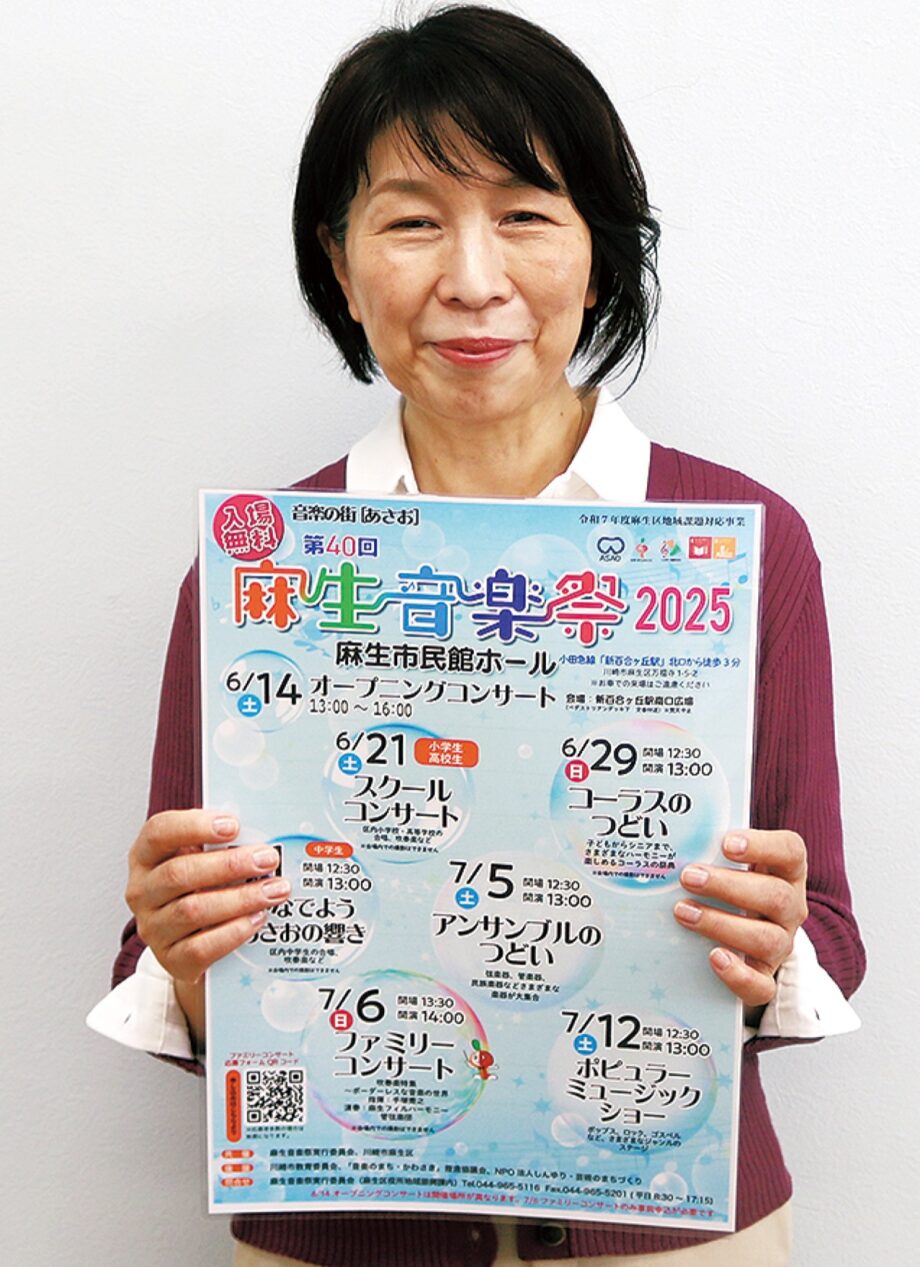 入場
無料
音楽の街[あさお]
令和7年度麻生区地域課題対応事業
第40回
ASAO
麻生音楽祭2025
麻生市民館ホール
小田急線「新百合ヶ丘駅」北口から徒歩3分
川崎市麻生区万福寺1-5-2
※お車での来場はご遠慮ください
6/14
土
オープニングコンサート
13:00 ～ 16:00
会場：新百合ヶ丘駅南口広場
6/21
土
小学生
高校生
スクール
コンサート
区内小学校・高等学校の
合唱、吹奏楽など
※会場内での撮影はできません
6/29
日
開場 12:30
開演 13:00
コーラスの
つどい
子どもからシニアまで、
さまざまなハーモニーが
楽しめるコーラスの祭典
※会場内での撮影はできません
中学生
開場 12:30
開演 13:00
なでよう
さおの響き
区内中学生の合唱、
吹奏楽など
※会場内での撮影はできません
7/5
土
開場 12:30
開演 13:00
アンサンブルの
つどい
弦楽器、管楽器、
民族楽器などさまざまな
楽器が大集合
7/6
日
開場 13:30
開演 14:00
ファミリー
コンサート
吹奏楽特集
～ボーダーレスな音楽の世界
指揮：手塚幸之
演奏：麻生フィルハーモニー
管弦楽団
※会場内での撮影はできません
7/12
土
開場 12:30
開演 13:00
ポピュラー
ミュージック
ショー
ポップス、ロック、ゴスペル
など、さまざまなジャンルの
ステージ
ファミリーコンサート
応募フォーム QRコード
麻生音楽祭実行委員会、川崎市麻生区
川崎市教育委員会、「音楽のまち・かわさき」推進協議会、NPO法人しんゆり・芸術のまちづくり
問合せ 麻生音楽祭実行委員会（麻生区役所地域振興課内）Tel.044-965-5116 Fax.044-965-5201（平日 8:30 ～ 17:15）
6/14 オープニングコンサートは開催場所が異なります。7/6 ファミリーコンサートのみ事前申込が必要です